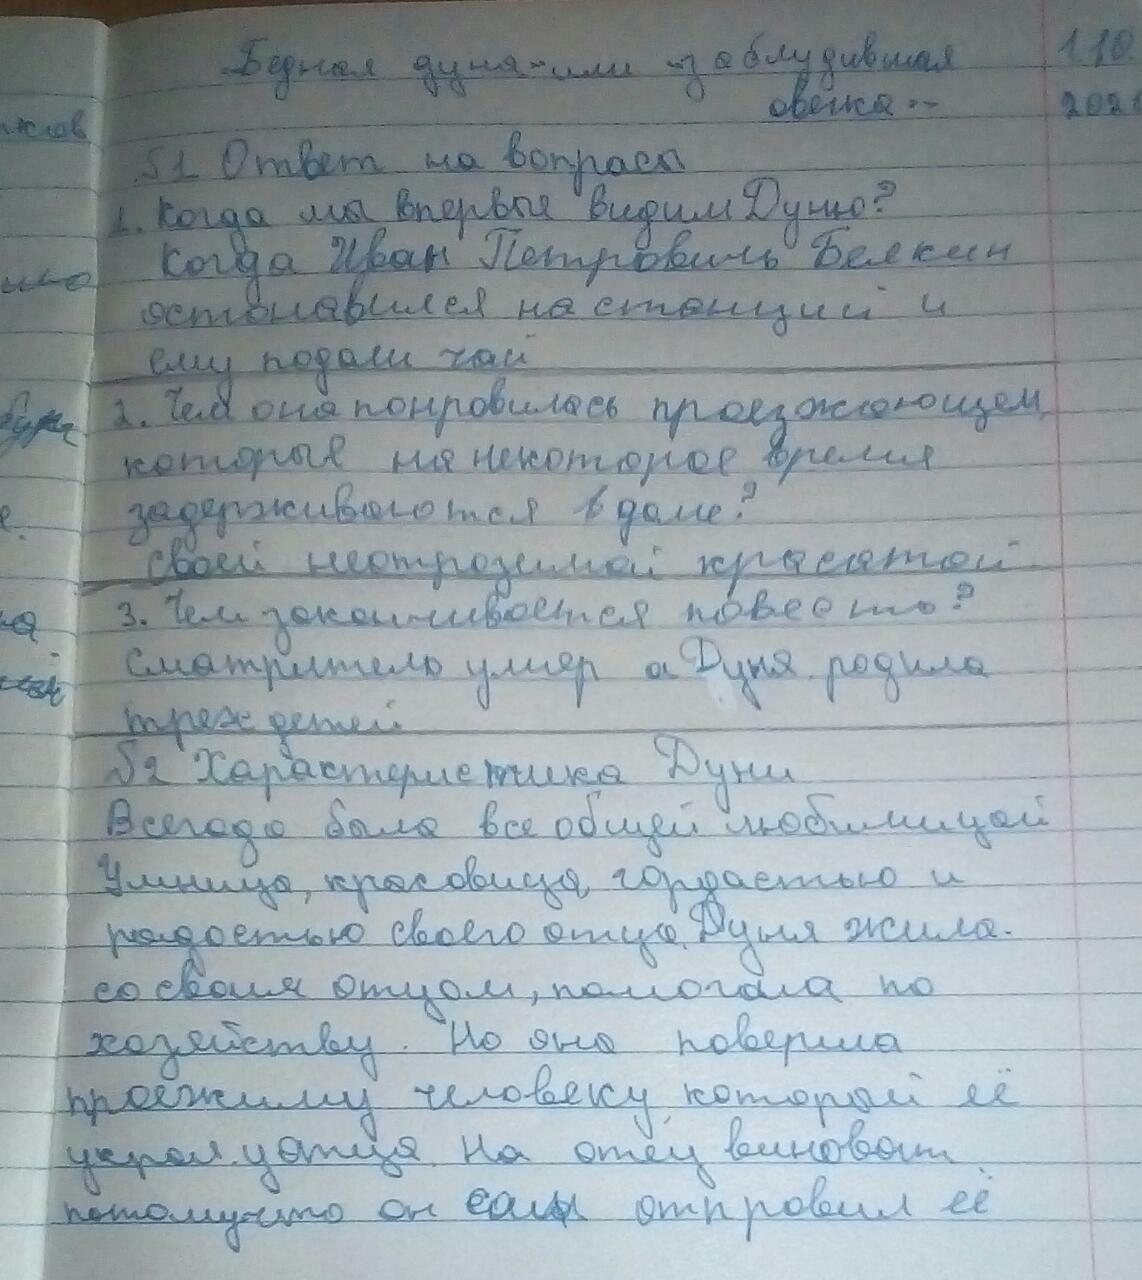 Бедная дуня-или заблудившая 1.10.
овечка.. 202
§1 Ответ на вопрасы
1. Когда мы впервые видим Дуню?
Когда Иван Петровичь Белкин
остонавился на станции и
ему подали чай
2. Чем она понровилась проезжающем
которые на некоторое время
задерживаются в доме?
своей неотрозимой красатой
3. Чем заканчивается повесть?
Сматритель умер а Дуня родила
трех детей
§2 Характеристика Дуни
Всегода была все общей любимицой
Умница, красовица, гордастью и
радостью своего отца. Дуня жила.
со своим отцом, помогала по
хозяйству. Но она поверила
проежиму человеку который её
украл у отца На отец виноват
потомучто он сам отправил её